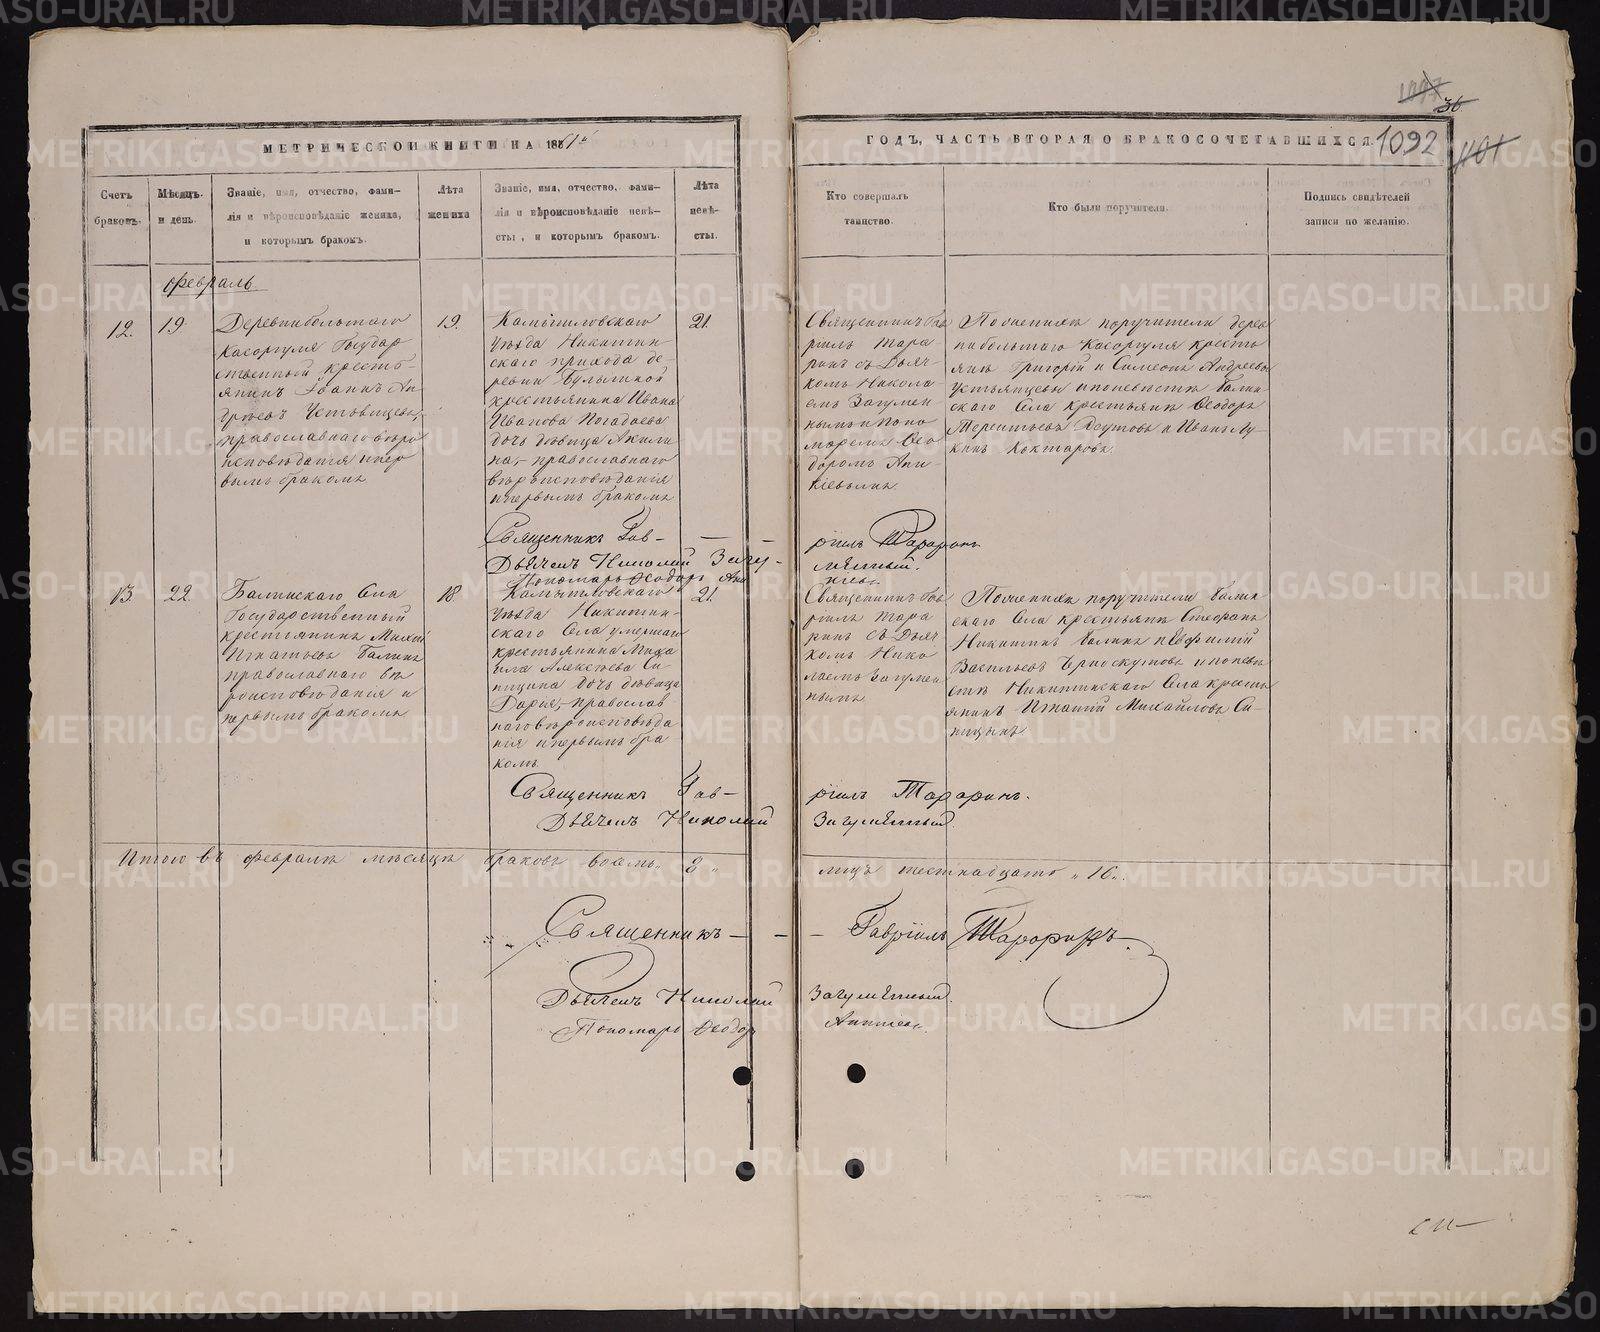 36
1092
МЕТРИЧЕСКОЙ КНИГИ НА 1861й
ГОДЪ, ЧАСТЬ ВТОРАЯ О БРАКОСОЧЕТАВШИХСЯ
Счетъ браковъ.
Мѣсяцъ и день.
Званіе, имя, отчество, фами-
лія и вѣроисповѣданіе жениха,
и которымъ бракомъ.
Лѣта жениха
Званіе, имя, отчество, фами-
лія и вѣроисповѣданіе невѣ-
сты, и которымъ бракомъ.
Лѣта невѣ-
сты.
Кто совершалъ
таинство.
Кто были поручители.
Подпись свидѣтелей
записи по желанію.
Февраль
12.
19.
Деревни большаго
Касаргуля Государ
ственный кресть-
янинъ Іванъ Ан
дреевъ Устьянцевъ,
православнаго вѣро
исповѣданія и пер
вымъ бракомъ
19.
Камышловскаго
уѣзда Никитин-
скаго прихода де-
ревни
крестьянина Ивана
Иванова Погадаева
дочь дѣвица Акили
на,- православнаго
вѣроисповѣданія
и первымъ бракомъ
21.
Священникъ Гав
ріилъ Тара
ринъ съ Дьяч-
комъ Никола
емъ Загумен
нымъ и поно
маремъ Фео
доромъ Ани-
кіевымъ
По женихѣ поручители дерев
ни большаго Касаргуля кресть
яне Григорій и Симеонъ Андреевы
Устьянцевы и по невѣстѣ Балин-
скаго Села крестьяне Феодоръ
Терентьевъ и Иванъ Лу
кинъ
Священникъ Гав-
ріилъ Тараринъ
Дьячекъ Николай Загу-
менный.
Пономарь Феодоръ Ани
кіевъ.
13
22.
Балинскаго Села
Государственный
крестьянинъ Михаи
Игнатьевъ Балинъ
православнаго вѣ
роисповѣданія и
первымъ бракомъ
18.
Камышловскаго
уѣзда Никитин-
скаго Села умершаго
крестьянина Миха
ила Алексѣева Си
ницина дочь дѣвица
Дарья,- православ
наго вѣроисповѣда
нія и первымъ бра
комъ.
21.
Священникъ Гав
ріилъ Тара
ринъ съ Дьяч
комъ Нико
лаемъ Загумен
нымъ
По женихѣ поручители Балин
скаго Села крестьяне Стефанъ
Никитинъ Балинъ и Евфимій
Васильевъ и по невѣ
стѣ Никитинскаго Села кресть
янинъ Игнатій Михайловъ Си-
ницынъ
Священникъ Гав-
ріилъ Тараринъ.
Дьячекъ Николай
Загуменный
Итого въ Февралѣ мѣсяцѣ браковъ восмь „ 8 „
лицъ шестнадцать „ 16 „.
Священникъ - - - Гавріилъ Тараринъ
Дьячекъ Николай Загуменный.
Пономарь Феодоръ Аникіевъ.
METRIKI.GASO-URAL.RU